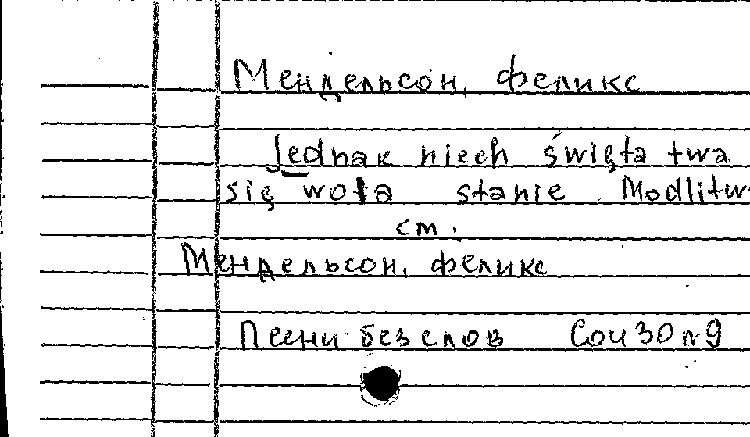 Мендельсон, феликс
Jednak niech święta twa
się woła stanie Modlitw
см.
Мендельсон, феликс
Песни без слов Соч 30 №9